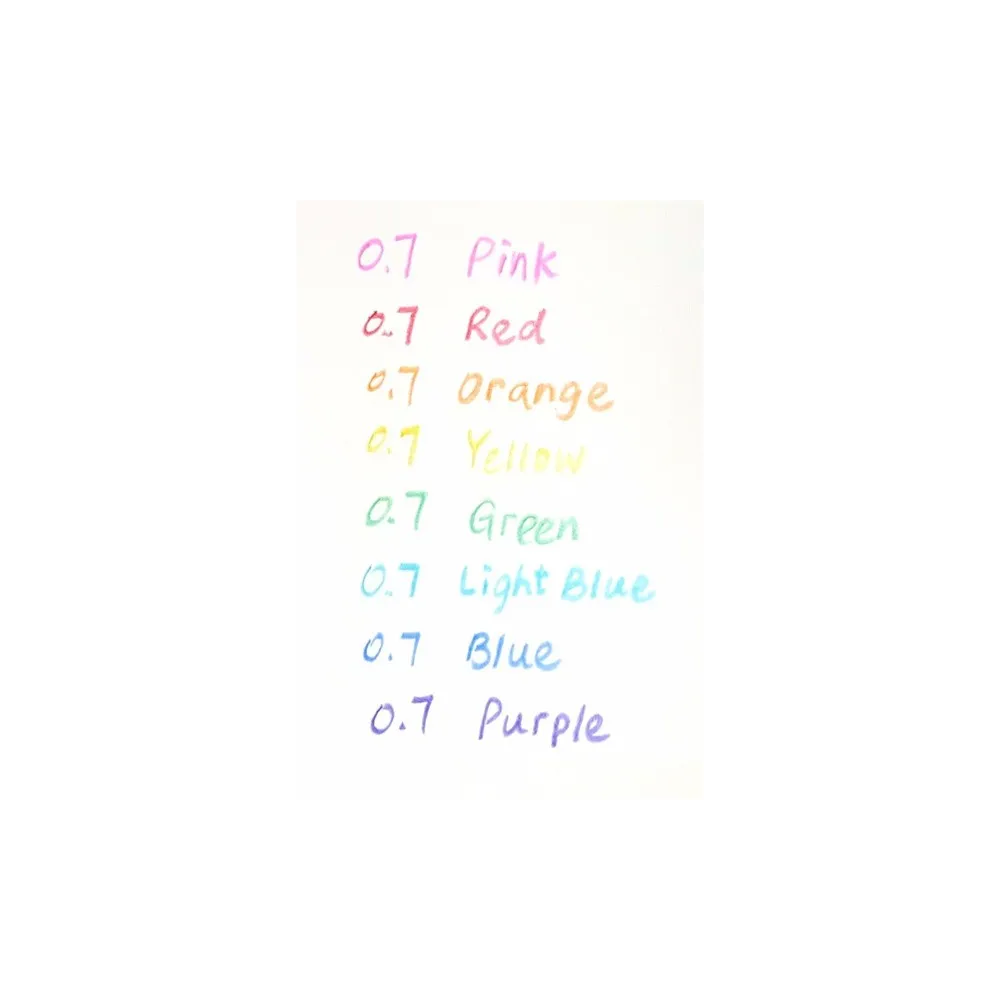 0.7 Pink
0.7 Red
0.7 Orange
0.7 Yellow
0.7 Green
0.7 Light Blue
0.7 Blue
0.7 Purple